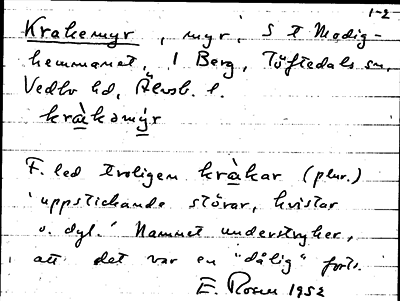 1-2
Krakemyr, myr, S t Modig-
hemmanet, 1 Berg, Töftedals sn,
Vedbo hd, Älvsb. l.
kràkəmỳr
F. led troligen kràkar (plur.)
'uppstickande störar, kvistar
o. dyl.' Namnet understryker,
att det var en "dålig" fort.
E. Rosen 1952